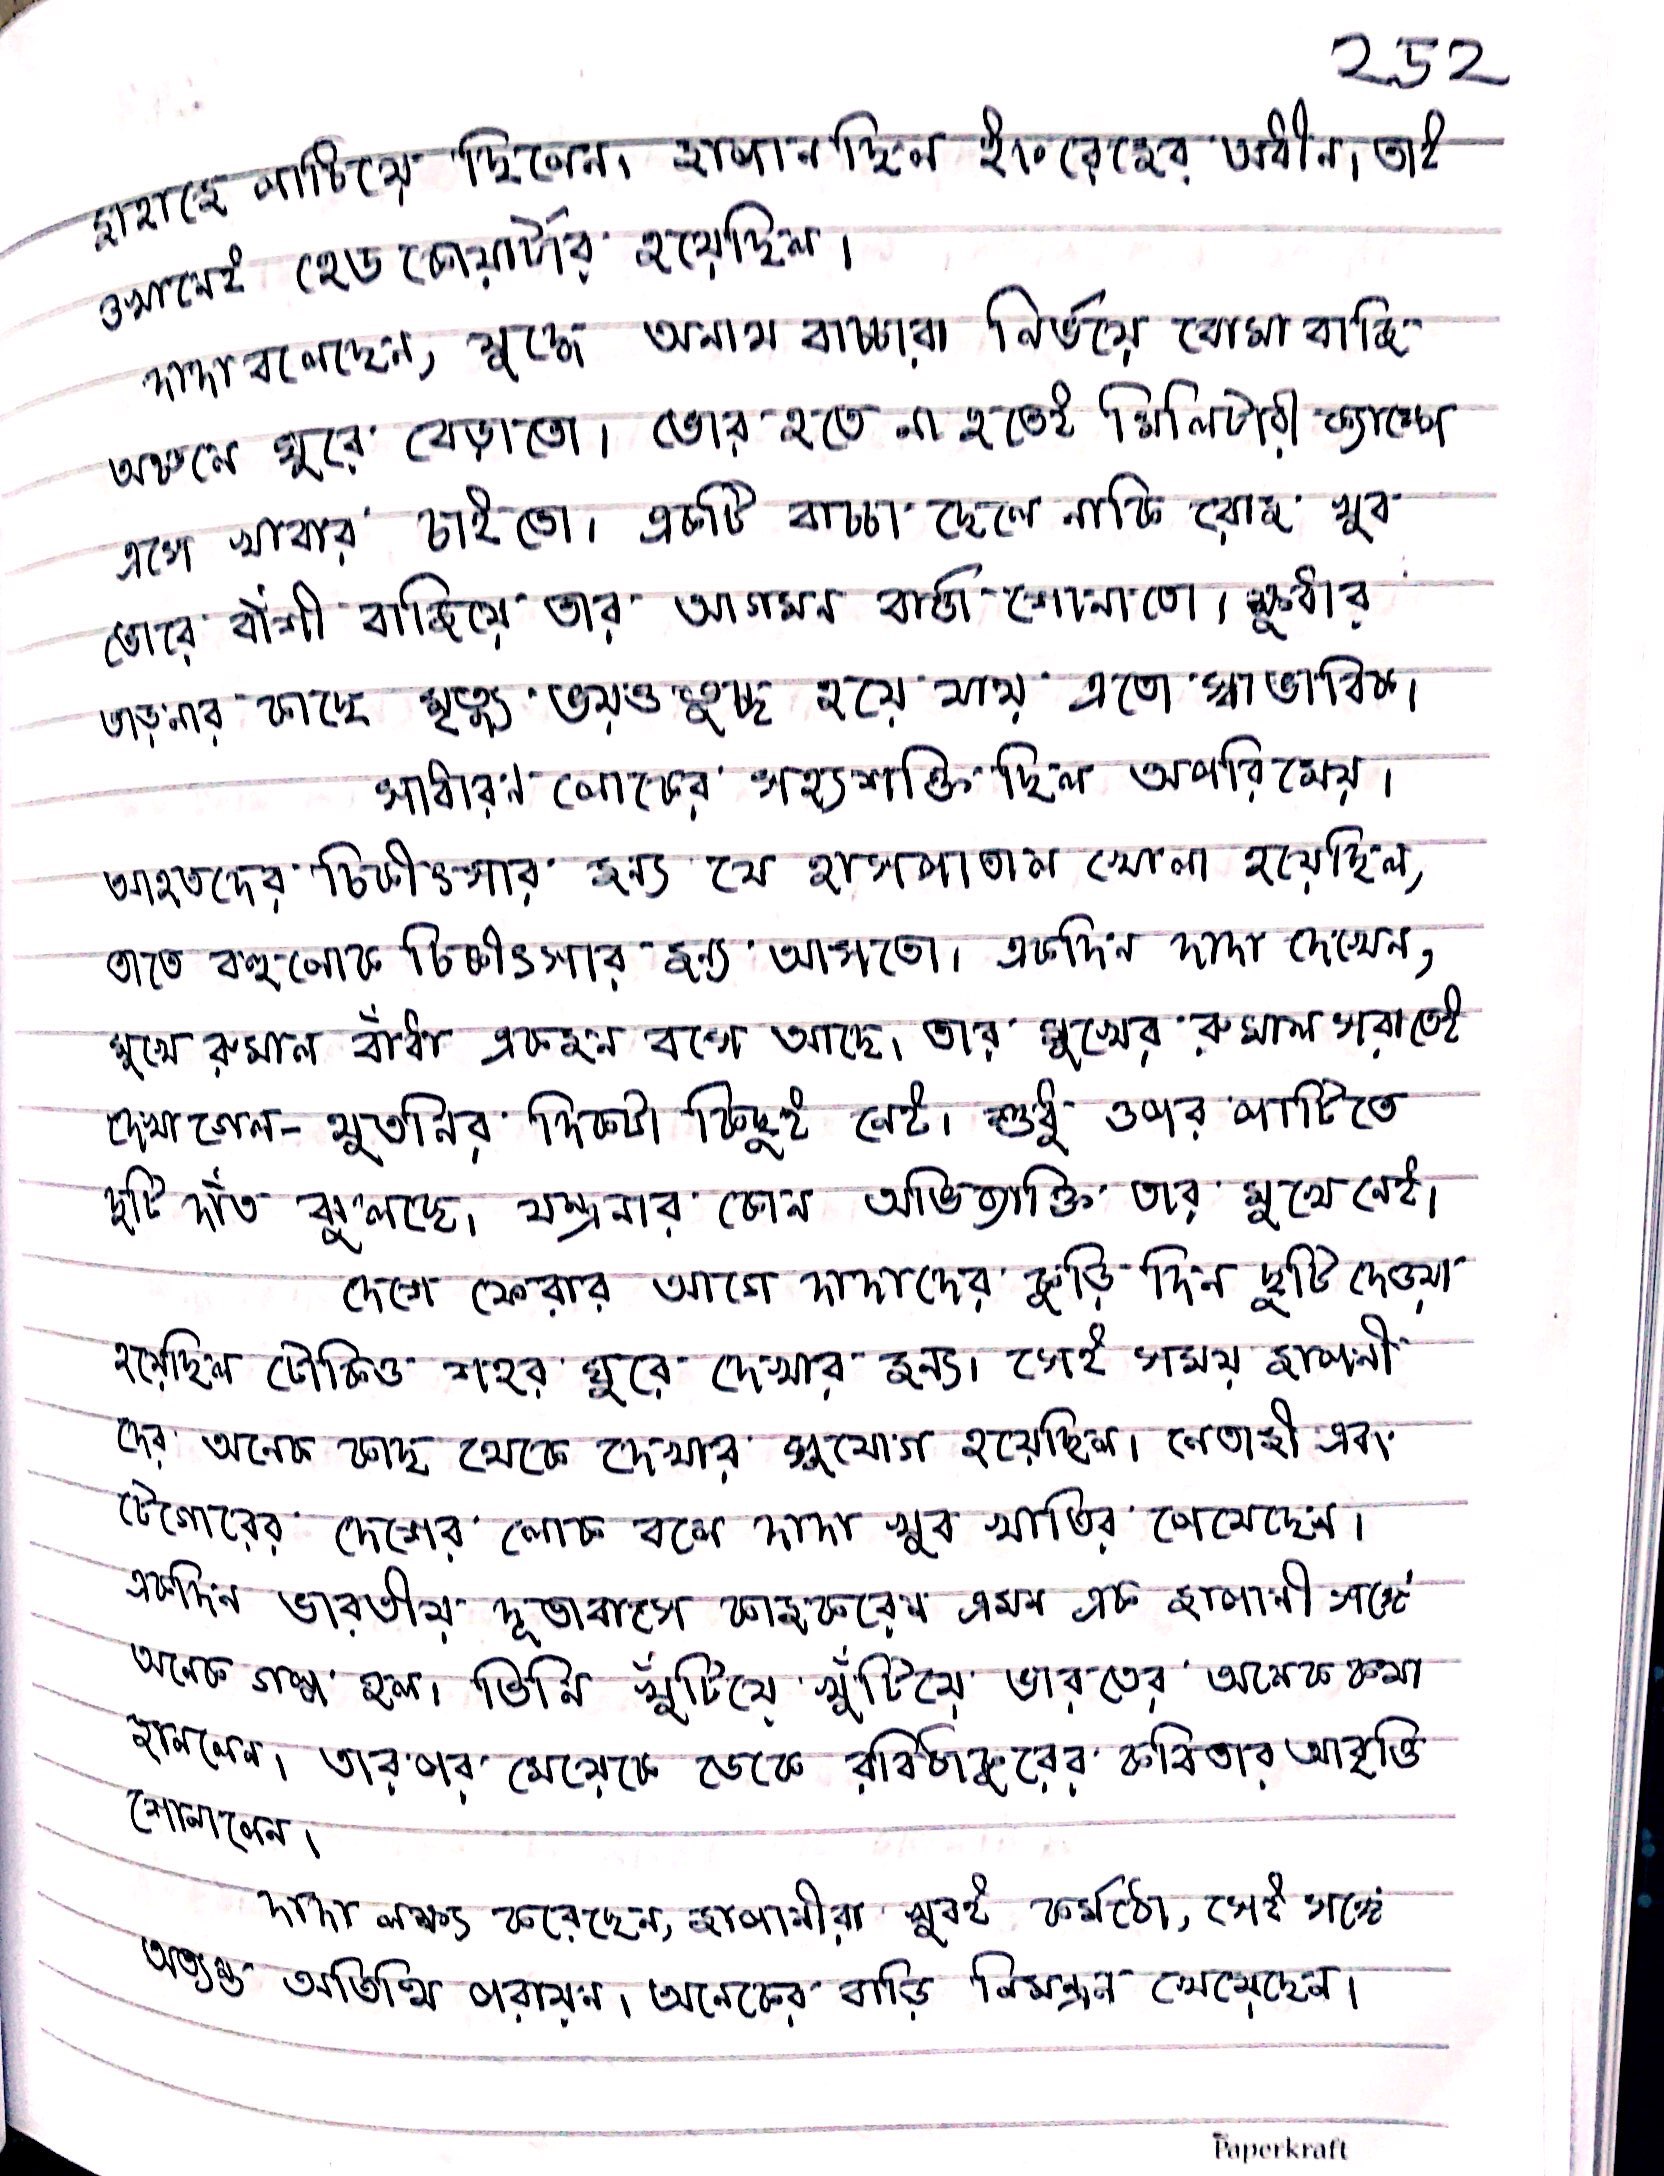 252
জাহাজে পাঠিয়ে ছিলেন। জাপান ছিল ইংরেজের অধীন। তাই
ওখানেই হেড কোয়ার্টার হয়েছিল।
দাদা বলেছেন, যুদ্ধে অনাথ বাচ্চারা নির্ভয়ে বোমা বাজি
অঞ্চলে ঘুরে বেড়াতো। ভোর হতে না হতেই মিলিটারী ক্যাম্পে
এসে খাবার চাইতো। একটি বাচ্চা ছেলে নাকি রোজ খুব
ভোরে বাঁশী বাজিয়ে তার আগমন বার্তা শোনাতো। ক্ষুধার
তাড়নার কাছে মৃত্যু ভয়ও তুচ্ছ হয়ে যায় এতো স্বাভাবিক।
সাধারণ লোকের সহ্যশক্তি ছিল অপরিমেয়।
আহতদের চিকীৎসার জন্য যে হাসপাতাল খোলা হয়েছিল,
তাতে বহুলোক চিকীৎসার জন্য আসতো। একদিন দাদা দেখেন,
মুখে রুমাল বাঁধা একজন বসে আছে। তার মুখের রুমাল সরাতেই
দেখা গেল- থুতনির দিকটা কিছুই নেই। শুধু ওপর পাটিতে
দুটি দাঁত ঝুলছে। যন্ত্রনার কোন অভিব্যক্তি তার মুখে নেই।
দেশে ফেরার আগে দাদাদের কুড়ি দিন ছুটি দেওয়া
হয়েছিল টোকিও শহর ঘুরে দেখার জন্য। সেই সময় জাপানী
দের অনেক কাছ থেকে দেখার সুযোগ হয়েছিল। নেতাজী এবং
টেগোরের দেশের লোক বলে দাদা খুব খাতির পেয়েছেন।
একদিন ভারতীয় দূতাবাসে কাজকরেন এমন এক জাপানী সঙ্গে
অনেক গল্প হল। তিনি খুঁটিয়ে খুঁটিয়ে ভারতের অনেক কথা
জানলেন। তারপর মেয়েকে ডেকে রবিঠাকুরের কবিতার আবৃত্তি
শোনালেন।
দাদা লক্ষ্য করেছেন, জাপানীরা খুবই কর্মঠো, সেই সঙ্গে
অত্যন্ত অতিথি পরায়ন। অনেকের বাড়ি নিমন্ত্রন খেয়েছেন।
Paperkraft